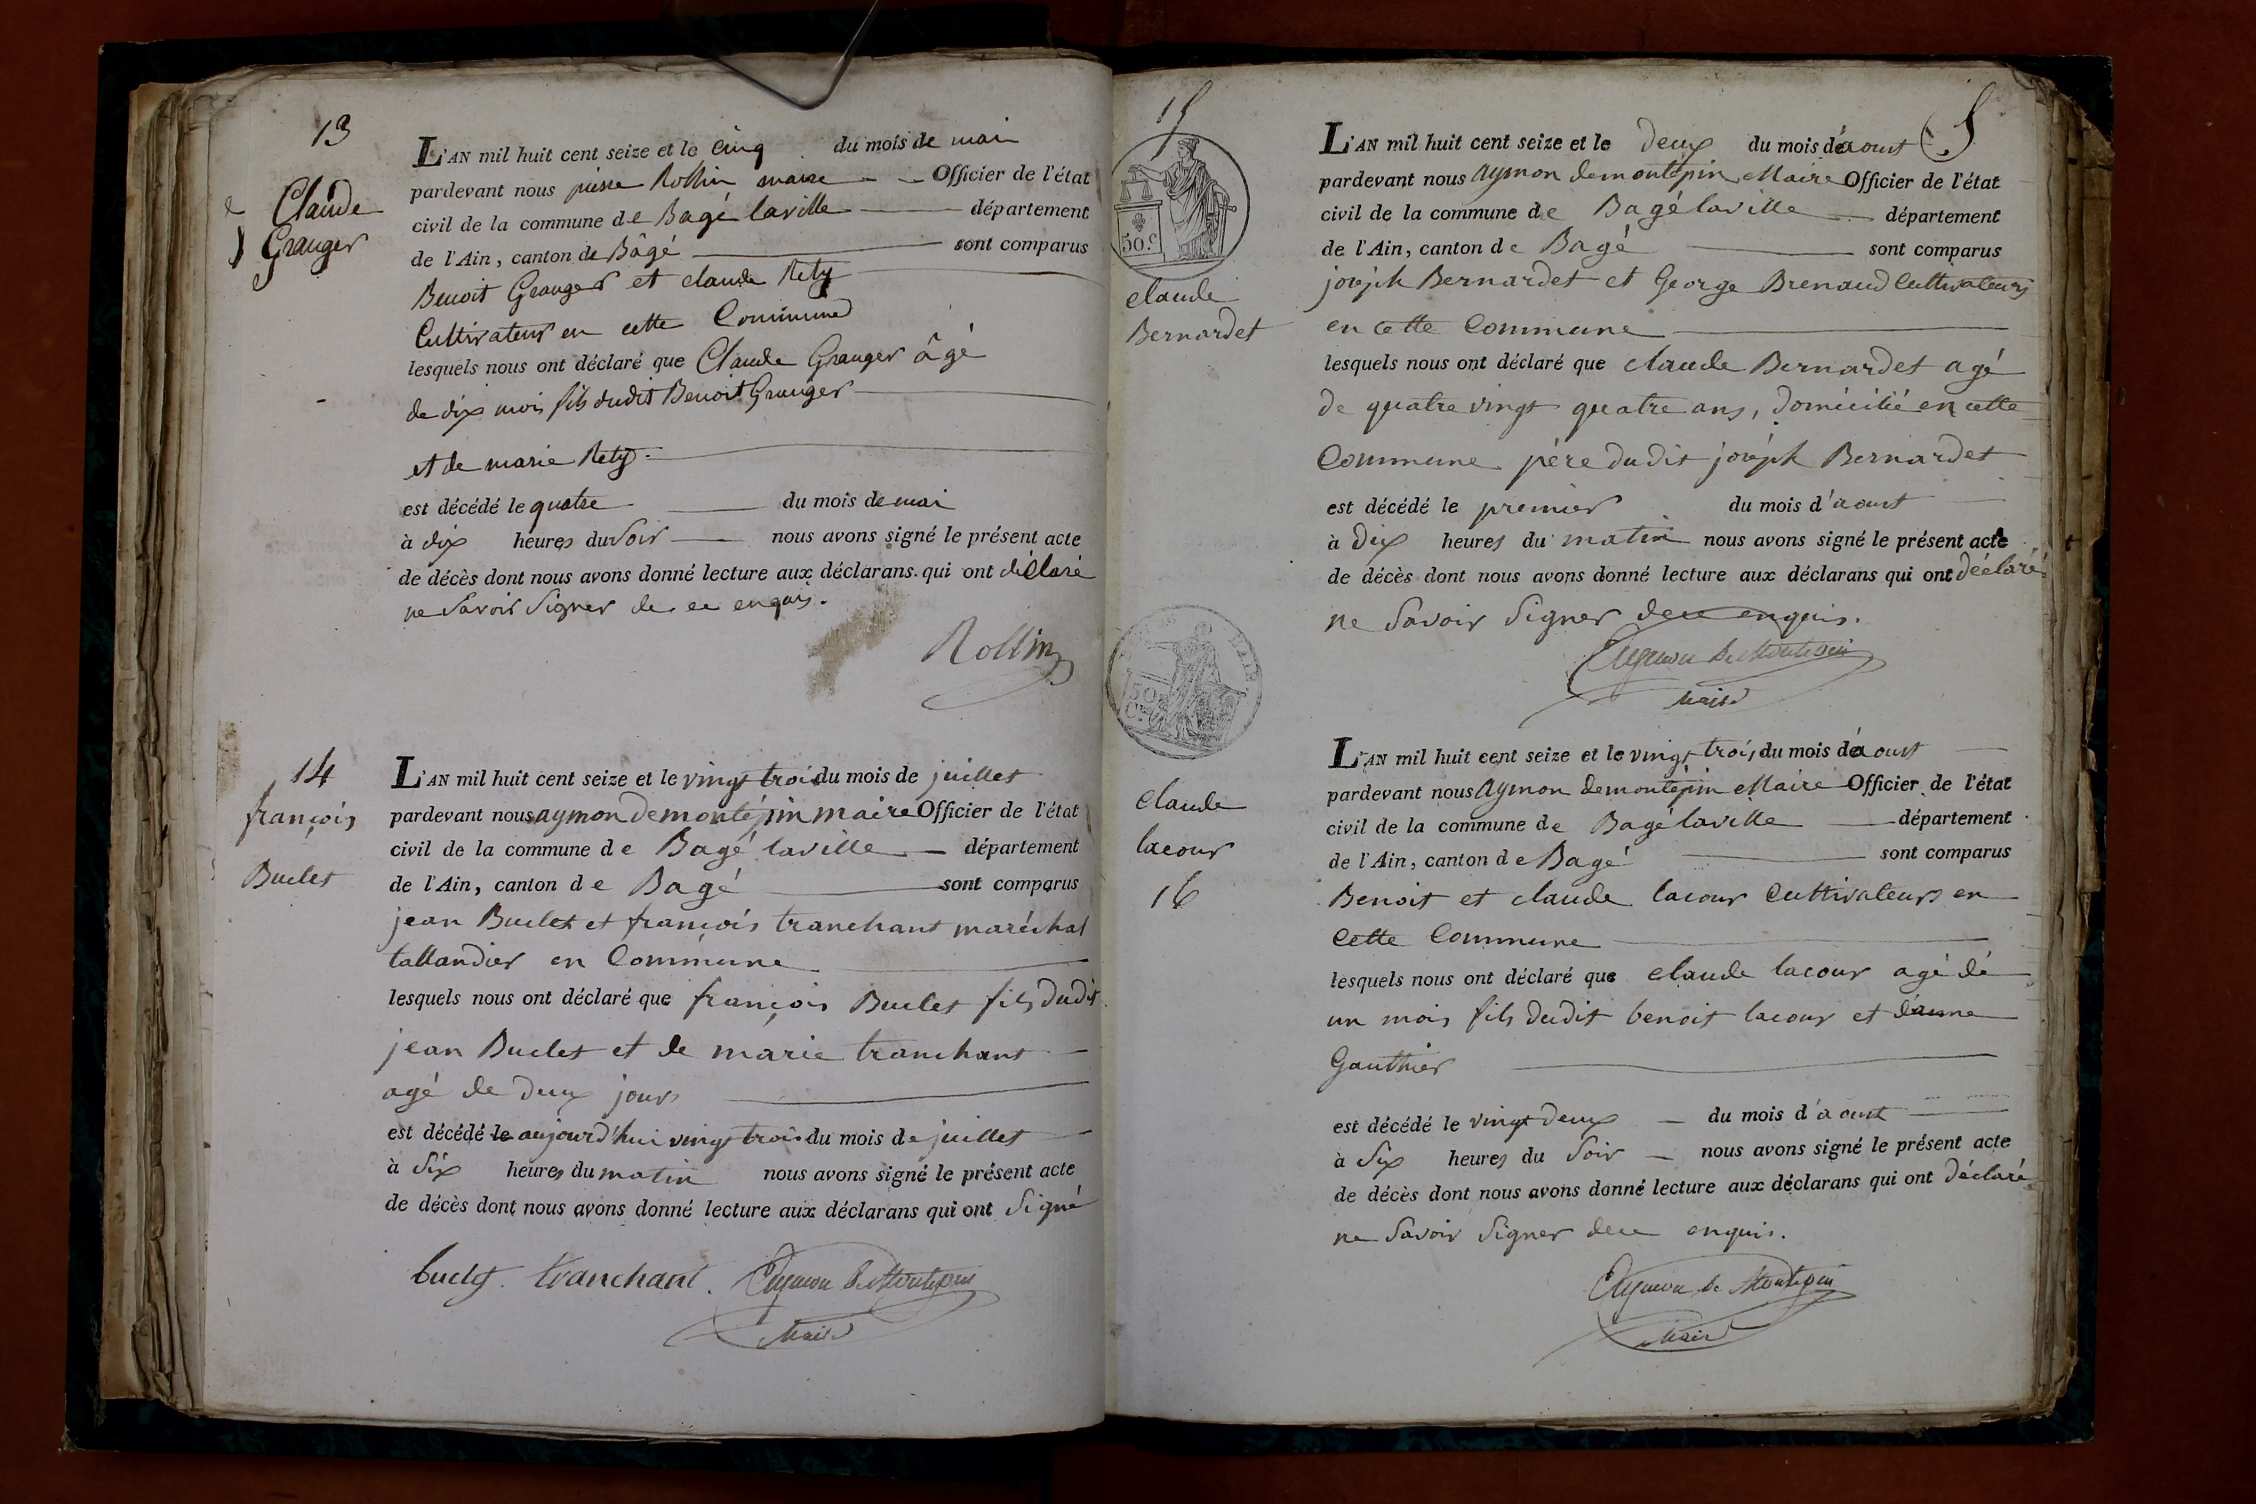 13
Claude
Granger
L'AN mil huit cent seize et le cinq du mois de mai
pardevant nous pierre Rollin maire Officier de l'état
civil de la commune de Bagé laville département
de l'Ain, canton de Bâgé sont comparus
Benoit Granger et claude Rety
Cultivateur en cette Commune
lesquels nous ont déclaré que Claude Granger âgé
de dix mois fils dudit Benoit Granger
et de marie Rety
est décédé le quatre du mois de mai
à dix heures du soir nous avons signé le présent acte
de décès dont nous avons donné lecture aux déclarans qui ont déclaré
ne Savoir Signer de ce enquis.
Rollin
14
françois
Buclet
L'AN mil huit cent seize et le vingt trois du mois de juillet
pardevant nous aymon demontépin maire Officier de l'état
civil de la commune de Bagé laville département
de l'Ain, canton de Bagé sont comparus
jean Buclet et françois tranchant maréchal
tallandier en Commune
lesquels nous ont déclaré que françois Buclet fils dudit
jean Buclet et de marie tranchant
agé de deux jours
est décédé le aujourd'hui vingt trois du mois de juillet
à Six heures du matin nous avons signé le présent acte
de décès dont nous avons donné lecture aux déclarans qui ont Signé
buclet. tranchant. Aymon de Montepin
Maire
15
5
50.c
claude
Bernardet
L'AN mil huit cent seize et le deux du mois d'aoust
pardevant nous Aymon demontépin Maire Officier de l'état
civil de la commune de Bagé laville département
de l'Ain, canton de Bagé sont comparus
joséph Bernardet et George Brenaud Cultivateurs
en cette Commune
lesquels nous ont déclaré que claude Bernardet agé
de quatre vingt quatre ans, domicilié en cette
Commune père dudit joséph Bernardet
est décédé le premier du mois d'aoust
à dix heures du matin nous avons signé le présent acte
de décès dont nous avons donné lecture aux déclarans qui ont déclaré
ne Savoir Signer dece enquis.
Aymon de Montepin
Maire
claude
lacour
16
L'AN mil huit cent seize et le vingt trois du mois d'aoust
pardevant nous Aymon demontépin Maire Officier de l'état
civil de la commune de Bagé laville département
de l'Ain, canton de Bagé sont comparus
Benoit et claude lacour Cultivateurs en
Cette Commune
lesquels nous ont déclaré que claude lacour agé dé
un mois fils dudit benoit lacour et d'anne
Gauthier
est décédé le vingt deux du mois d'aoust
à Six heures du Soir nous avons signé le présent acte
de décès dont nous avons donné lecture aux déclarans qui ont déclaré
ne Savoir Signer dece enquis.
Aymon de Montepin
Maire